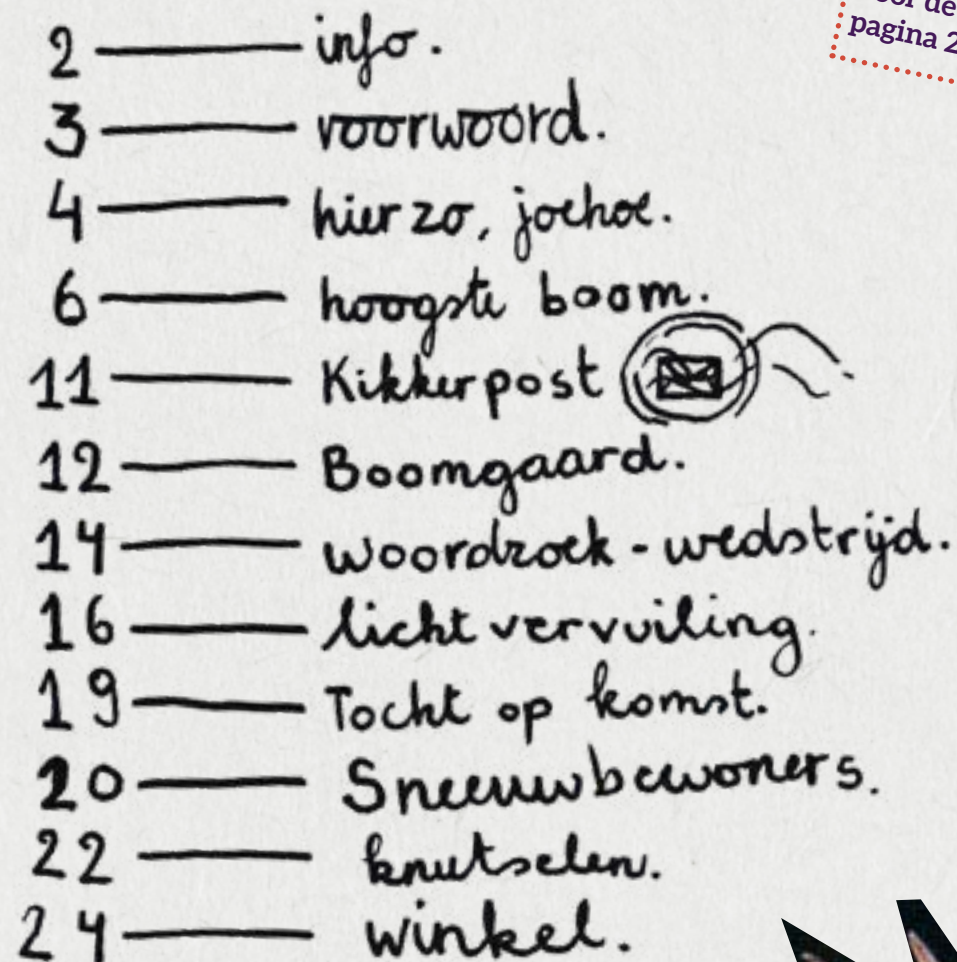 pagina 2
2 info.
3 voorwoord.
4 hier zo, joehoe.
6 hoogste boom.
11 Kikkerpost
12 Boomgaard.
14 woordzoek - wedstrijd.
16 lichtvervuiling.
19 Tocht op komst.
20 Sneeuwbewoners.
22 knutselen.
24 winkel.